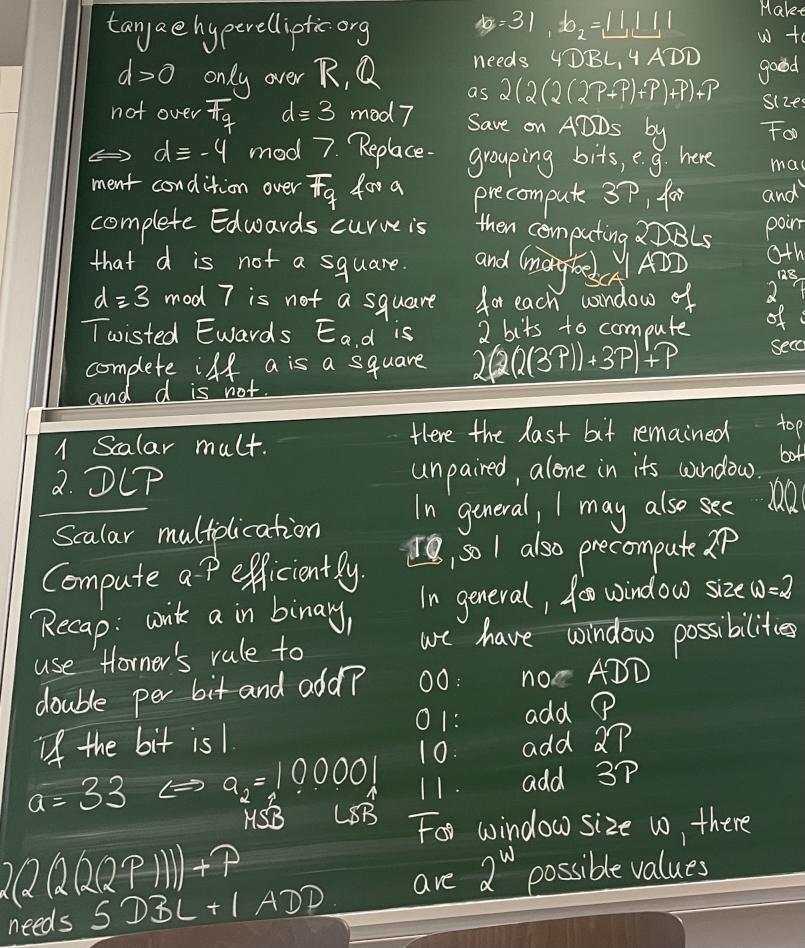 tanja@hyperelliptic.org
d>0 only over ℝ, ℚ
not over 𝔽q d≡3 mod 7
⟺ d≡-4 mod 7. Replace-
ment condition over 𝔽q for a
complete Edwards curve is
that d is not a square.
d≡3 mod 7 is not a square
Twisted Ewards E_a,d is
complete iff a is a square
and d is not.
1 Scalar mult.
2. DLP
Scalar multiplication
Compute a·P efficiently.
Recap: write a in binary,
use Horner's rule to
double per bit and add P
if the bit is 1.
a=33 ⟺ a₂=100001
MSB LSB
2(2(2(2(2P))))+P
needs 5 DBL + 1 ADD
b=31, b₂=11111
needs 4DBL, 4 ADD
as 2(2(2(2P+P)+P)+P)+P
Save on ADDs by
grouping bits, e.g. here
precompute 3P, for
then computing 2DBLs
and (maybe) 1 ADD
SCA
for each window of
2 bits to compute
2(2(2(3P))+3P)+P
Here the last bit remained
unpaired, alone in its window.
In general, I may also see
10, so I also precompute 2P
In general, for window size w=2
we have window possibilities
00: no ADD
01: add P
10: add 2P
11: add 3P
For window size w, there
are 2^w possible values
Make
w to
good
sizes
For
and
Oth
128
of
top